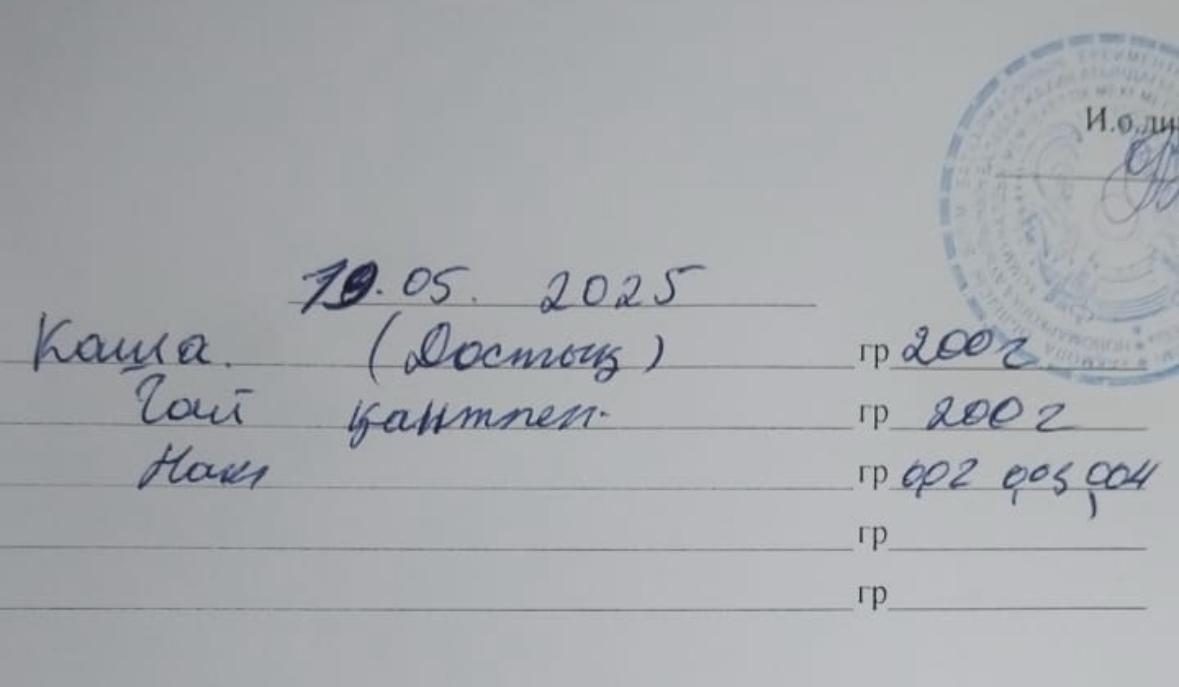 И.о.ди
19.05. 2025
Каша. (Достық) гр 200 г
Чай қантпен. гр 200 г
Нан гр 0,02 0,03 0,04
гр
гр